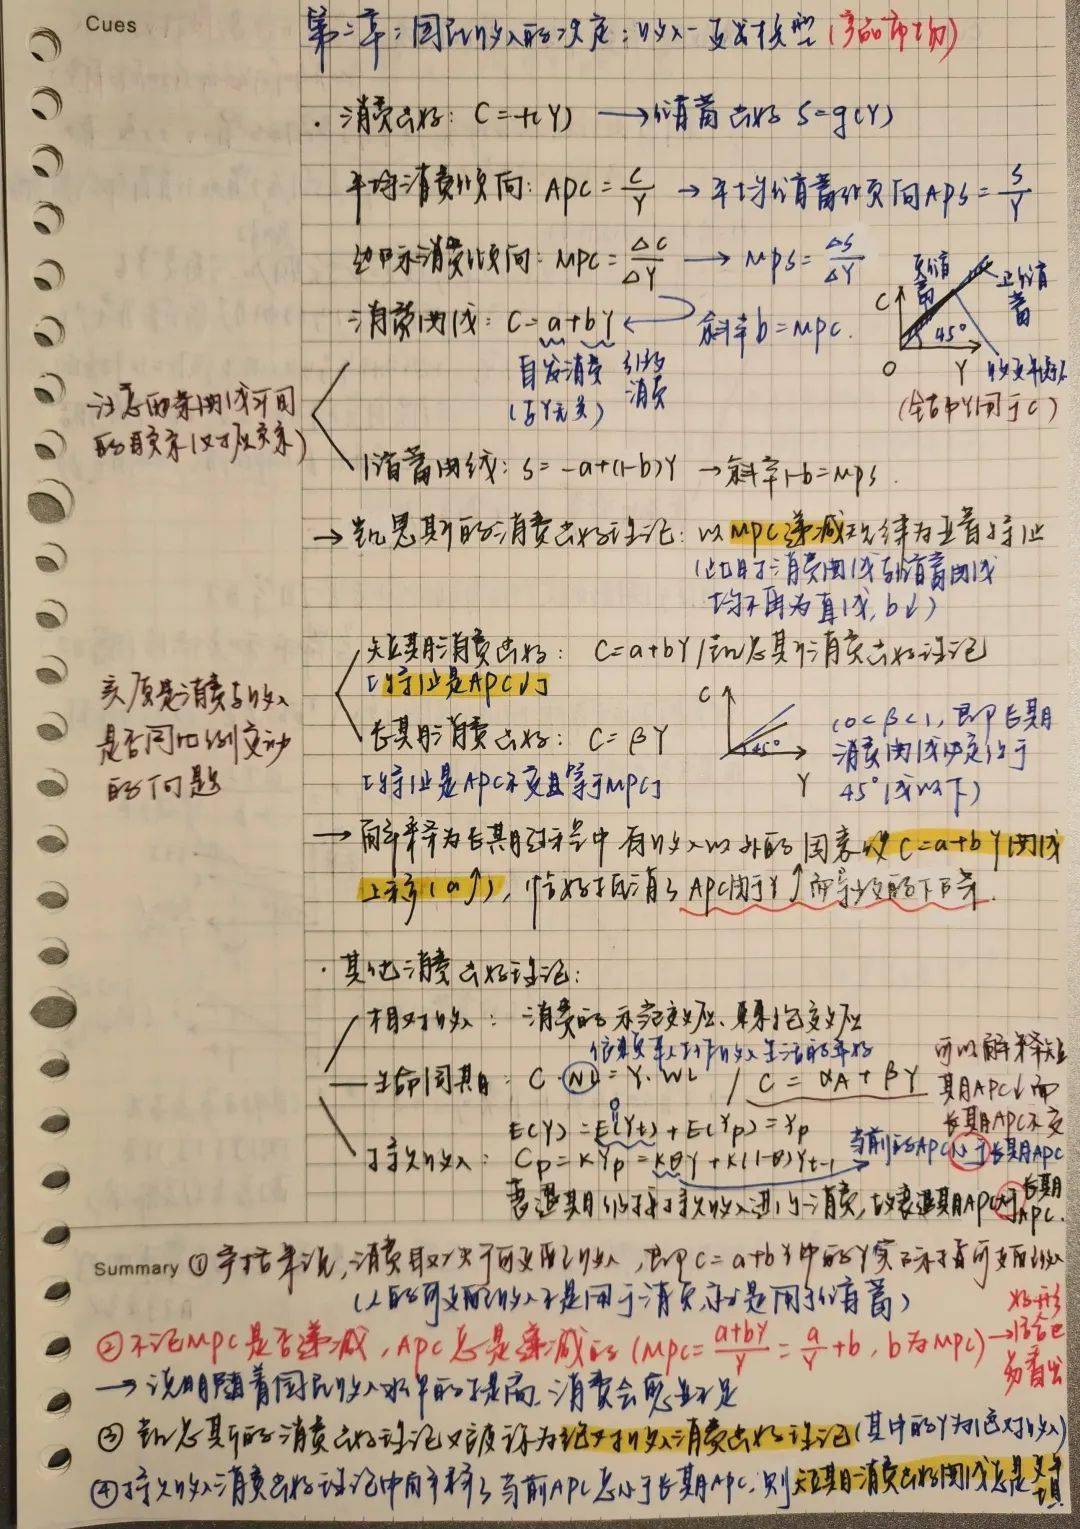 Cues
第二章：国民收入的决定：收入-支出模型(产品市场)
·消费函数：C=f(Y) →储蓄函数 S=g(Y)
平均消费倾向：APC=C/Y →平均储蓄倾向APS=S/Y
边际消费倾向：MPC=ΔC/ΔY → MPS=ΔS/ΔY
消费曲线：C=a+bY 斜率b=MPC.
自发消费 引致消费
(与Y无关)
负储蓄
正储蓄
C
45°
O
Y
收支平衡
(全部Y用于C)
注意两条曲线开间的联系(对应关系)
储蓄曲线：S=-a+(1-b)Y →斜率1-b=MPS.
→凯恩斯的消费函数理论：以MPC递减规律为显著特征
(此时消费曲线与储蓄曲线
均不再为直线，b↓)
短期消费函数：C=a+bY/凯恩斯消费函数理论
[特征是APC↓]
实质是消费与收入
是否同比例变动
的问题
长期消费函数：C=βY
[特征是APC不变且等于MPC]
C
45°
Y
(0<β<1，即长期
消费曲线决定位于
45°线以下)
→解释为长期过程中有收入以外的因素使C=a+bY曲线
上移(a↑)，恰好抵消了APC由于Y↑而导致的下降.
·其他消费函数理论：
相对收入：消费的示范效应、棘轮效应
生命周期：C·NL=Y·WL / C=αA+βY
可以解释短
期APC↓而
长期APC不变
E(Y)=E(Yt)+E(Yp)=Yp
0
持久收入：Cp=KYp=KθY+K(1-θ)Yt-1
当前的APC小于长期APC
衰退期仍按持久收入进行消费，故衰退期APC大于长期APC.
Summary ①字拮来说，消费取决于可支配收入，即C=a+bY中的Y实际指可支配收入
(人的可支配收入不是用于消费，就是用于储蓄)
②不论MPC是否递减，APC总是递减的(MPC=a+bY/Y=a/Y+b，b为MPC)
→说明随着国民收入水平的提高，消费会愈显不足
③凯恩斯的消费函数理论又被称为绝对收入消费函数理论(其中的Y为绝对收入)
④持久收入消费函数理论中解释了当前APC总小于长期APC，则短期消费函数曲线总是更平坦